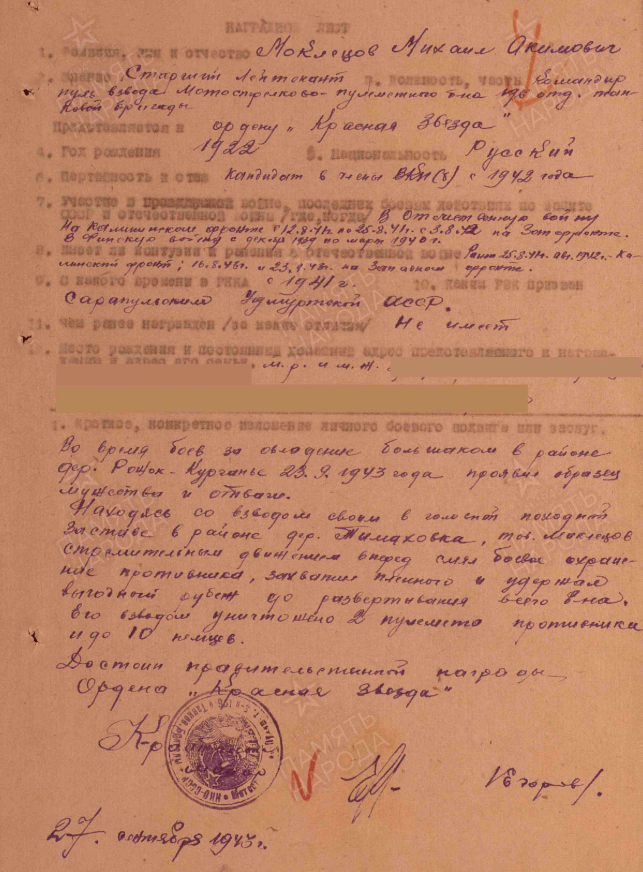 НАГРАДНОЙ ЛИСТ
1. Фамилия, имя и отчество Моклецов Михаил Акимович
2. Звание Старший Лейтенант 3. Должность, часть Командир
пуль взвода Мотострелково-пулеметного б-на отд. тан-
ковой бригады
Представляется к ордену „Красная Звезда"
4. Год рождения 1922 5. Национальность Русский
6. Партийность и стаж кандидат в члены ВКП(б) с 1942 года
7. Участие в гражданской войне, последующих боевых действиях по защите
СССР и отечественной войне /где, когда/ В Отечественную войну
На Калининском фронте с 12.8.41г. по 25.8.41г. с 3.8.42 на Зап. фронте.
В Финскую войну с декаб 1939 по март 1940 г.
8. Имеет ли контузии и ранения в отечественной войне Ранен 25.8.41г. 1942г. - Ка-
лининский фронт; 16.8.43г. и 23.1.43г. на Западном фронте.
9. С какого времени в РККА с 1941 г. 10. Каким РВК призван
Сарапульским Удмуртской АССР.
11. Чем ранее награжден /за какие отличия/ Не имеет
12. Место рождения и постоянный домашний адрес представляемого к награж-
дению и адрес его семьи, м.р. и м.ж.
1. Краткое, конкретное изложение личного боевого подвига или заслуг.
Во время боев за овладение большаком в районе
дер. Рожок - Курганье 23.9.1943 года проявил образец
мужества и отваги.
Находясь со взводом своим в головной походной
заставе в районе дер. Тимаховка, тов. Моклецов
стремительным движением вперед смял боевое охране-
ние противника, захватил пленного и удержал
выгодный рубеж до развертывания всего б-на.
Его взводом уничтожено 2 пулемета противника
и до 10 немцев.
Достоин правительственной награды
Ордена „Красная Звезда"
К-р
Егоров/.
27. сентября 1943 г.
ПАМЯТЬ
НАРОДА